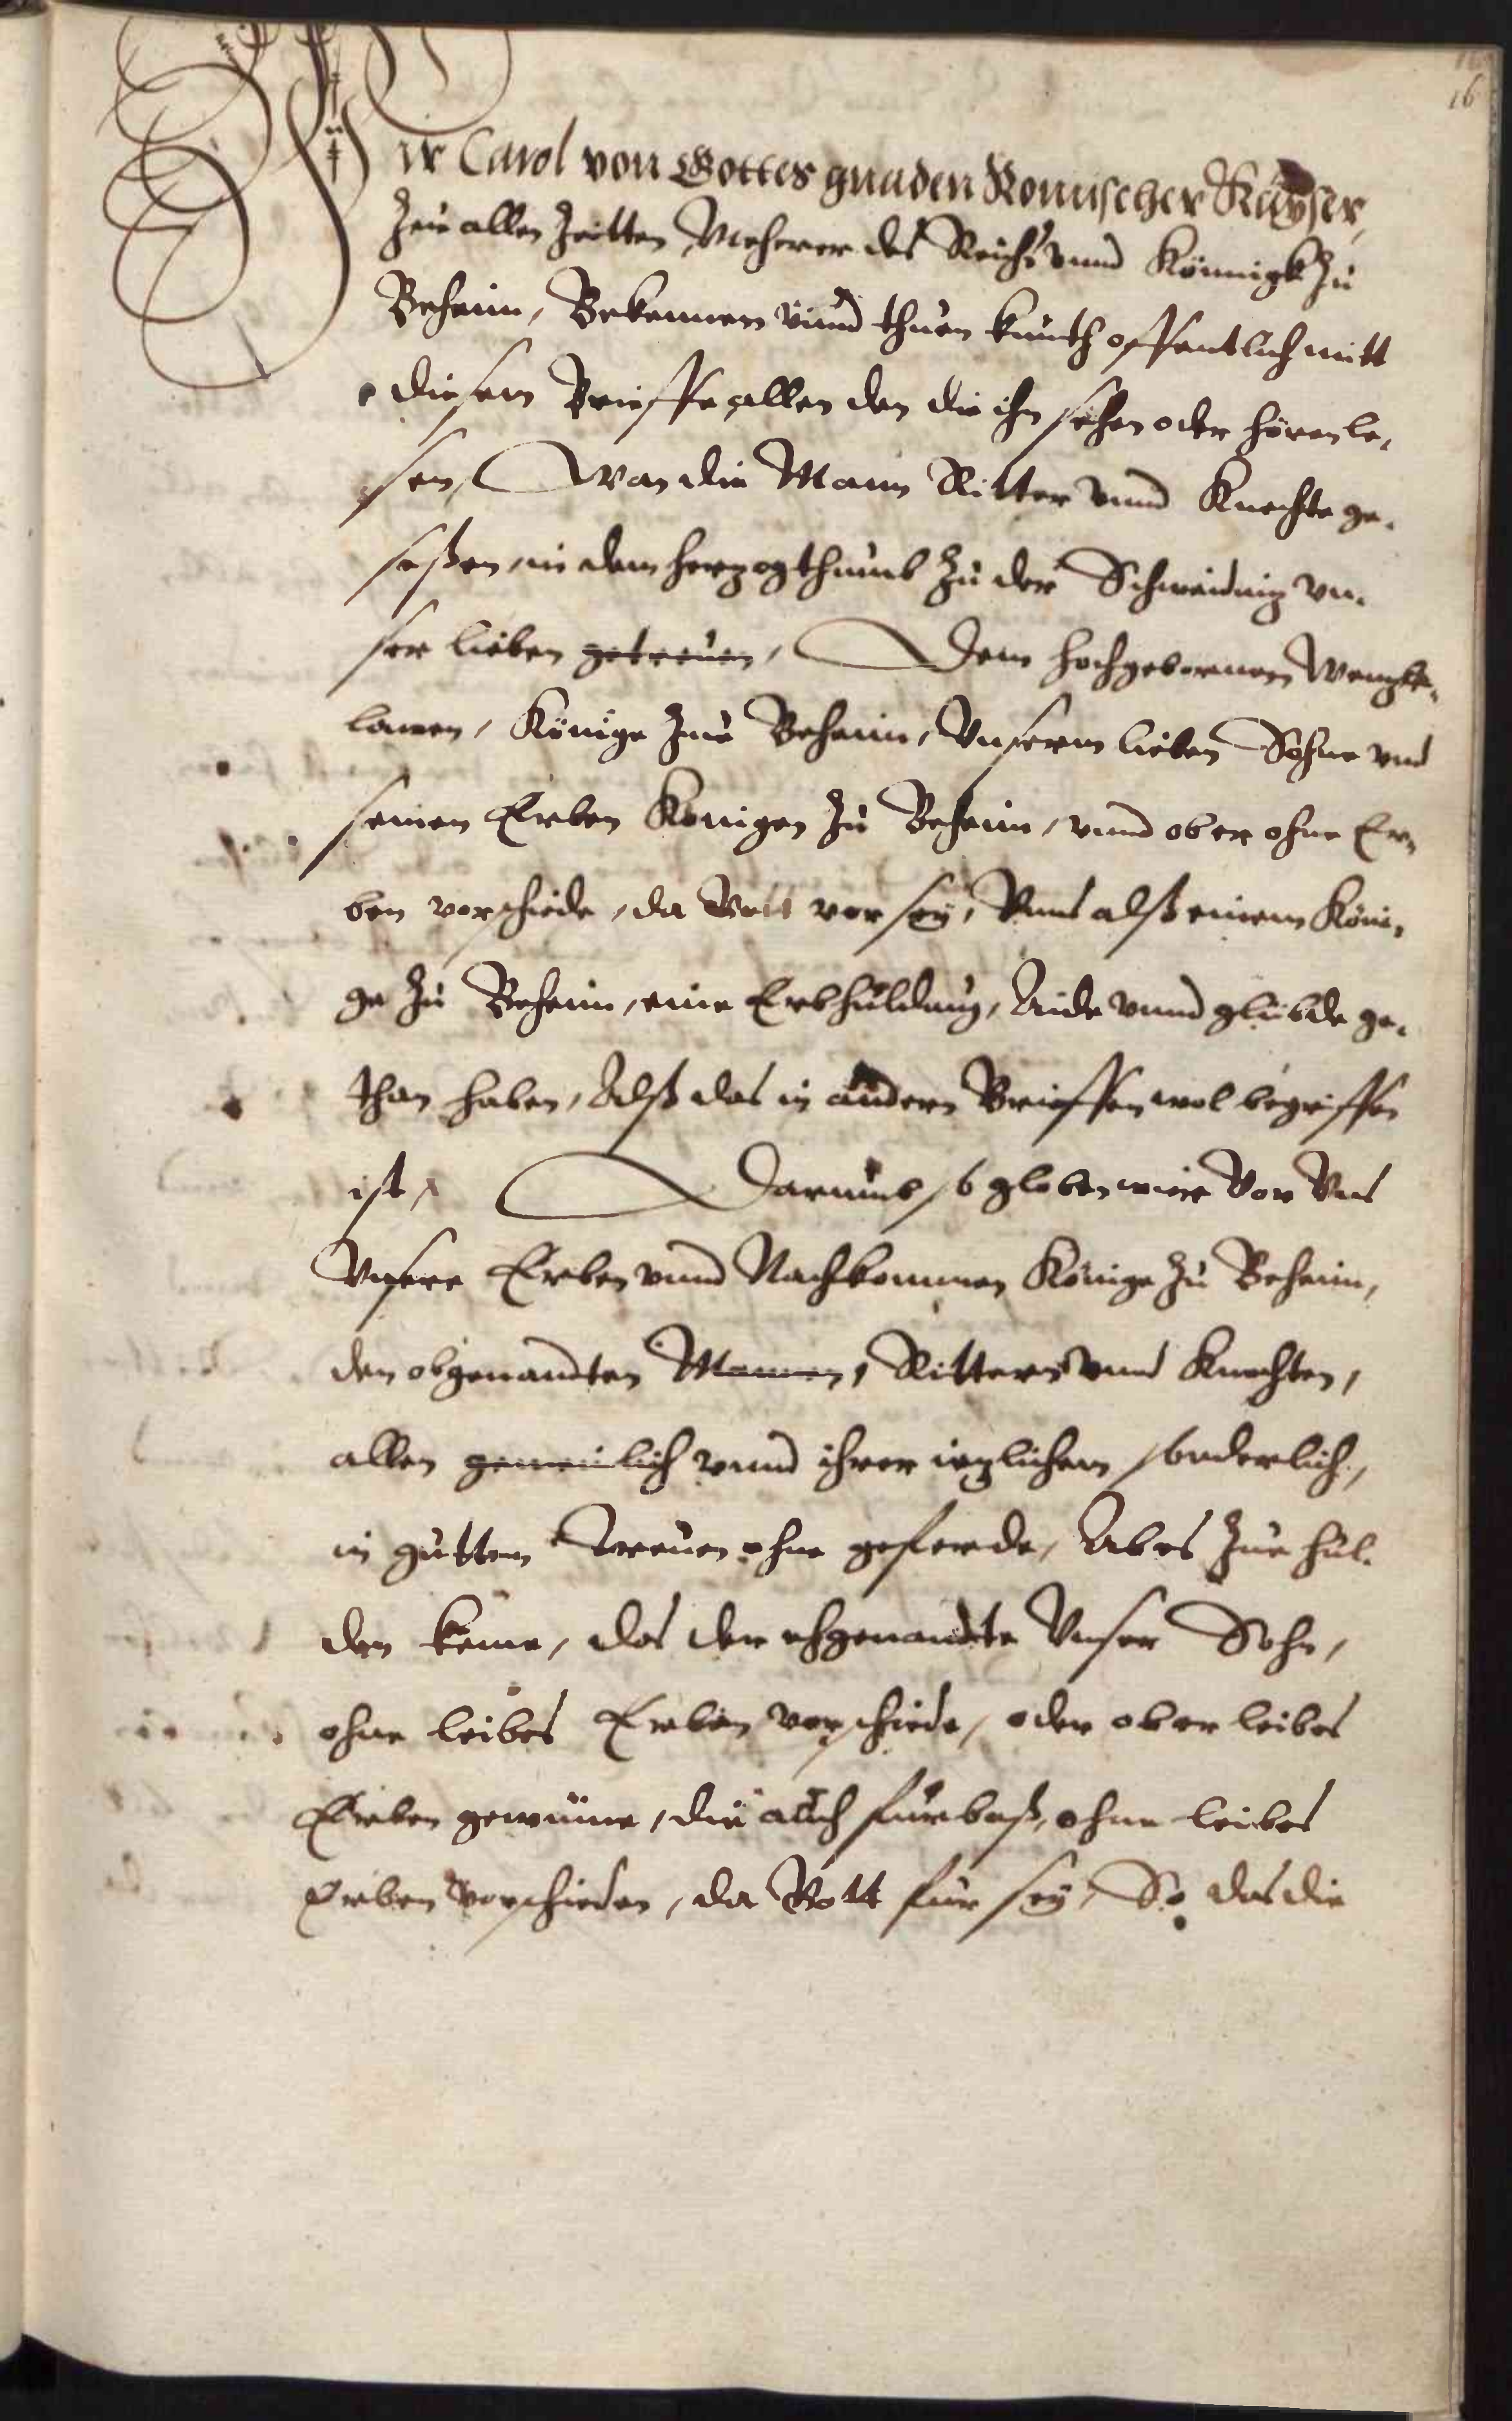 16
Wir Carol von Gottes gnaden Romischer Kayser,
Zue allen Zeitten Meherer des Reichs vnnd Königk zu
Beheim, Bekennen vnnd thuen kunth offentlich mitt
diesem Brieffe, allen den die ihn sehen oder hören le,
sen, Wan die Mann Ritter vnnd Knechte ge,
seßen, in dem herzogthumb zu der Schweidniz vn,
ser lieben getreuen, Dem hochgebornen Wenzla,
lawen, Könige zue Beheim, Vnserm lieben Sohne vnd
seinen Erben Königen zu Beheim, vnnd ob er ohne Er,
ben verschiede, da Gott vor sey, Vnns alß einem Köni,
ge zu Beheim, eine Erbhuldung, Aide vnnd glübde ge,
than haben, Alß das in andern Brieffen wol begriffen
ist, Darumb so globen wir Vor Vns
Vnsere Erben vnnd Nachkommen Könige zu Beheim,
den obgenandten Mannen, Rittern vnnd Knechten,
allen gemeinlich vnnd ihrer iezlichem sonderlich,
in gutten Treuen ohne geferde, Ab es zue schul,
den keme, das der ehgenandte Vnser Sohn,
ohne leibes Erben verschiede, oder ob er leibes
Erben gewünne, die auch fürbaß, ohne leibes
Erben verschieden, da Gott für sey, So das die